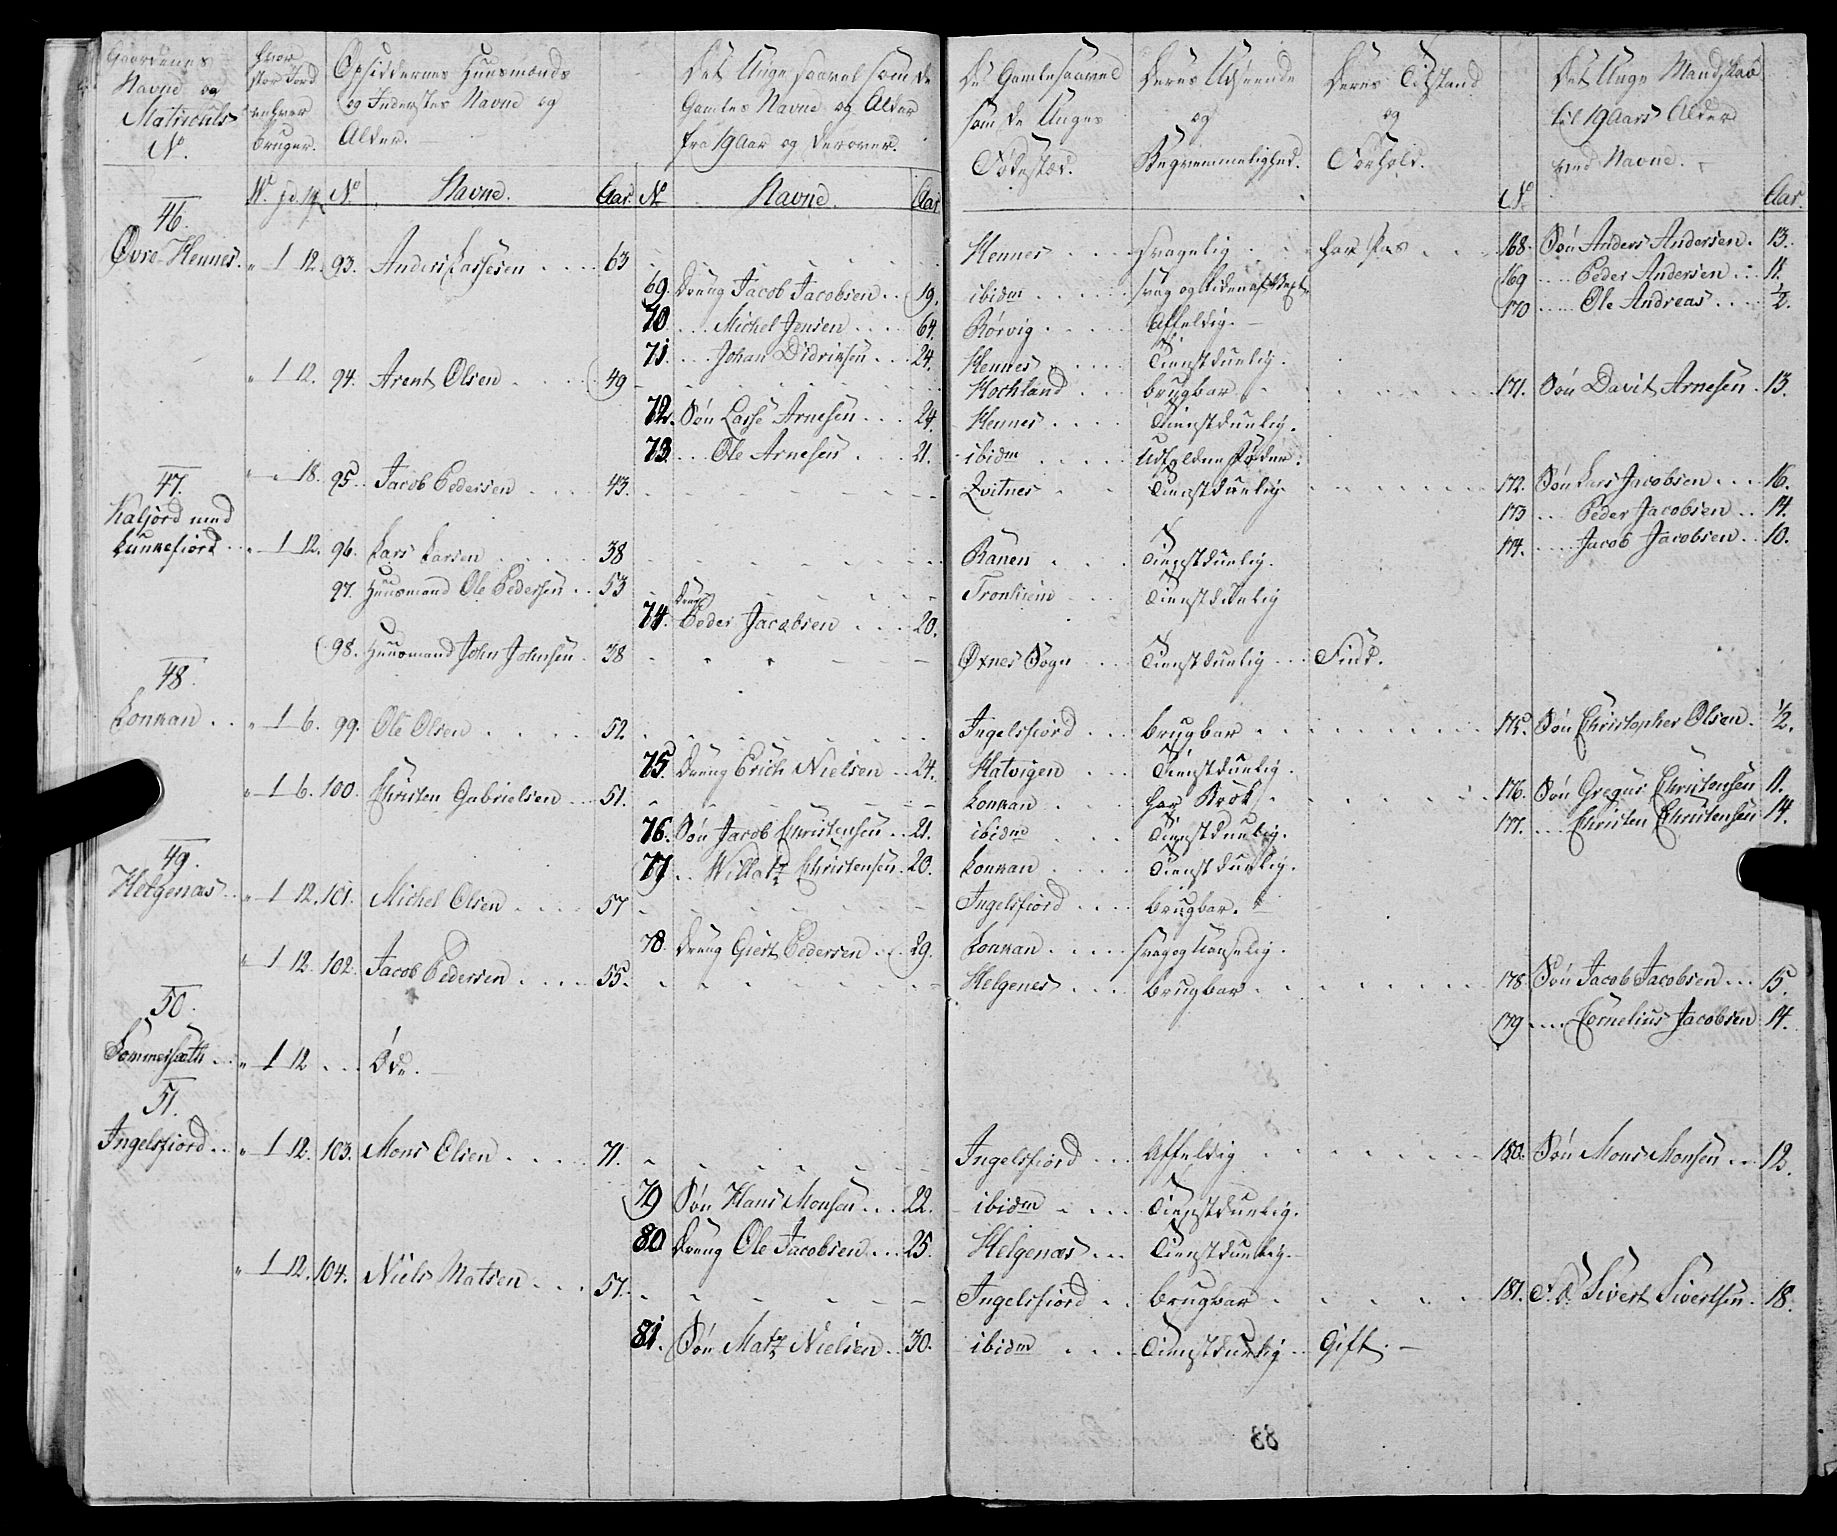 Gaardenes Navne og Matriculs No.
Hvor stor Jord enhver bruger.
Opsiddernes Huusmænds og Inderstes Navne og Alder.
Det Unge saavel som de Gamles Navne og Alder fra 19 Aar og derover.
De Gamle saavel som de Unges Fødested.
Deres Udseende og Beqvemmelighed.
Deres Tilstand og Forhold.
Det Unge Mandskab til 19 Aars Alder med Navne.
No Navne. Aar. No Navne. Aar No Aar.
46.
Øvre Hennes. " 1 12. 93. Anders Lassesen 63 Hennes svagelig har Pas 168. Søn Anders Andersen. 13.
69. Dreng Jacob Jacobsen 19. ibidm 169 Peder Andersen 11.
70 Michel Jensen 64. Rørvig Affeldig. 170 Ole Andreas ½.
71. Johan Didriksen 24. Hennes Tienstduelig.
" 1 12. 94. Arent Olsen 49 Hochland brugbar 171. Søn Davit Arnesen 13.
72. Søn Lasse Arnesen 24. Hennes Tienstduelig.
73. Ole Arnesen 21. ibidm
47.
" " 18. 95. Jacob Pedersen 43. Qvitnes Tienstduelig 172. Søn Lars Jacobsen 16.
Kaljord med
173 Peder Jacobsen 14.
Lunkefiord " 1 12. 96. Lars Larsen 38 Ranen Tienstduelig. 174. Jacob Jacobsen 10.
97. Huusmand Ole Pedersen 53 Tronhiem Tienstduelig
74. Dreng Peder Jacobsen 20.
98. Huusmand John Johnsen 38 Øxnes Sogn Tienstduelig Find.
48.
Konkan " 1 6. 99. Ole Olsen 52 Ingelsfiord brugbar 175. Søn Christopher Olsen. ½.
75. Dreng Erich Nielsen 24. Hatvigen Tienstduelig.
" 1 6. 100. Christen Gabrielsen 51. Konkan har Brok 176. Søn Gregus Christensen 11.
76. Søn Jacob Christensen 21. ibidm Tienstduelig. 177. Christen Christensen 14.
49.
77. Willatz Christensen 20. Konkan Tienstduelig.
Helgenæs " 1 12. 101. Michel Olsen 57 Ingelsfiord brugbar.
78. Dreng Giert Pedersen 29. Konkan
" 1 12. 102. Jacob Pedersen 55. Helgenes brugbar 178 Søn Jacob Jacobsen 15.
179 Cornelius Jacobsen 14.
50.
Sommersæth " 1 12 Øde.
51.
Ingelsfiord " 1 12. 103. Mons Olsen 71. Ingelsfiord Affeldig 180. Søn Mons Monsen 12.
79 Søn Hans Monsen 22. ibidm Tienstduelig.
80 Dreng Ole Jacobsen 25. Helgenæs Tienstduelig.
" 1 12. 104. Niels Matsen 57. Ingelsfiord brugbar 181. Sivert Sivertsen 18.
81. Søn Matz Nielsen 30. ibidm Tienstduelig Gift.
83